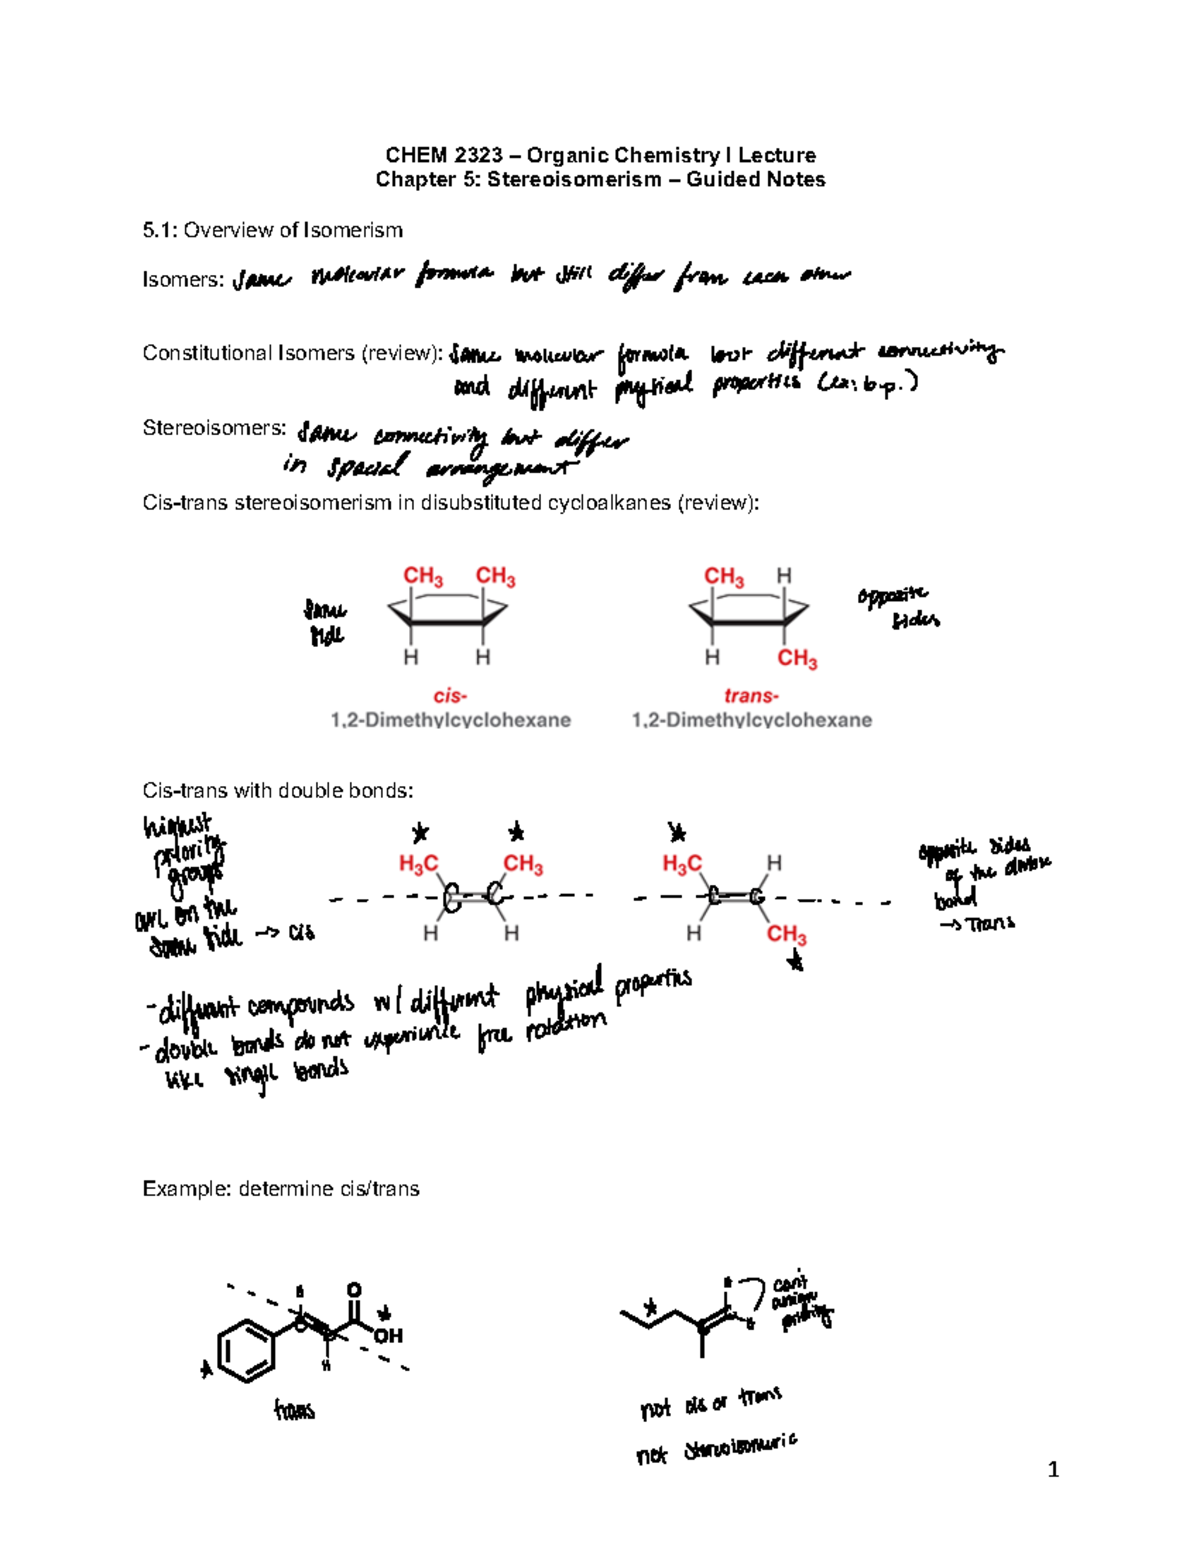 CHEM 2323 – Organic Chemistry I Lecture
Chapter 5: Stereoisomerism – Guided Notes
5.1: Overview of Isomerism
Isomers: same molecular formula but still differ from each other
Constitutional Isomers (review): same molecular formula but different connectivity
and different physical properties (ex: b.p.)
Stereoisomers: same connectivity but differ
in spacial arrangement
Cis-trans stereoisomerism in disubstituted cycloalkanes (review):
CH3 CH3 CH3 H
same
side
opposite
sides
H H H CH3
cis- trans-
1,2-Dimethylcyclohexane 1,2-Dimethylcyclohexane
Cis-trans with double bonds:
highest
priority
groups
are on the
same side → cis
H3C CH3 H3C H
C C C C
H H H CH3
opposite sides
of the double
bond
→ Trans
- different compounds w/ different physical properties
- double bonds do not experience free rotation
like single bonds
Example: determine cis/trans
H O
C C OH
H
trans
H
C C H
can't
assign
priority
not cis or trans
not stereoisomeric
1